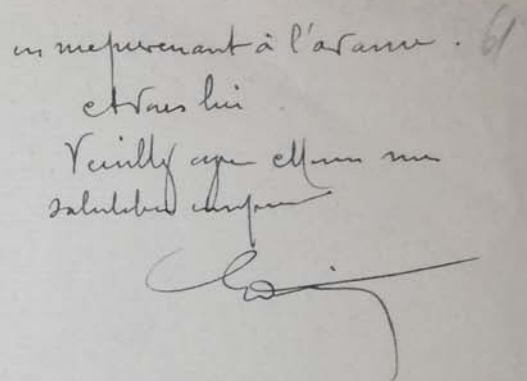 en me prevenant à l'avance. 61
et vous lui
Veuillez agréer Monsieur mes
salutations